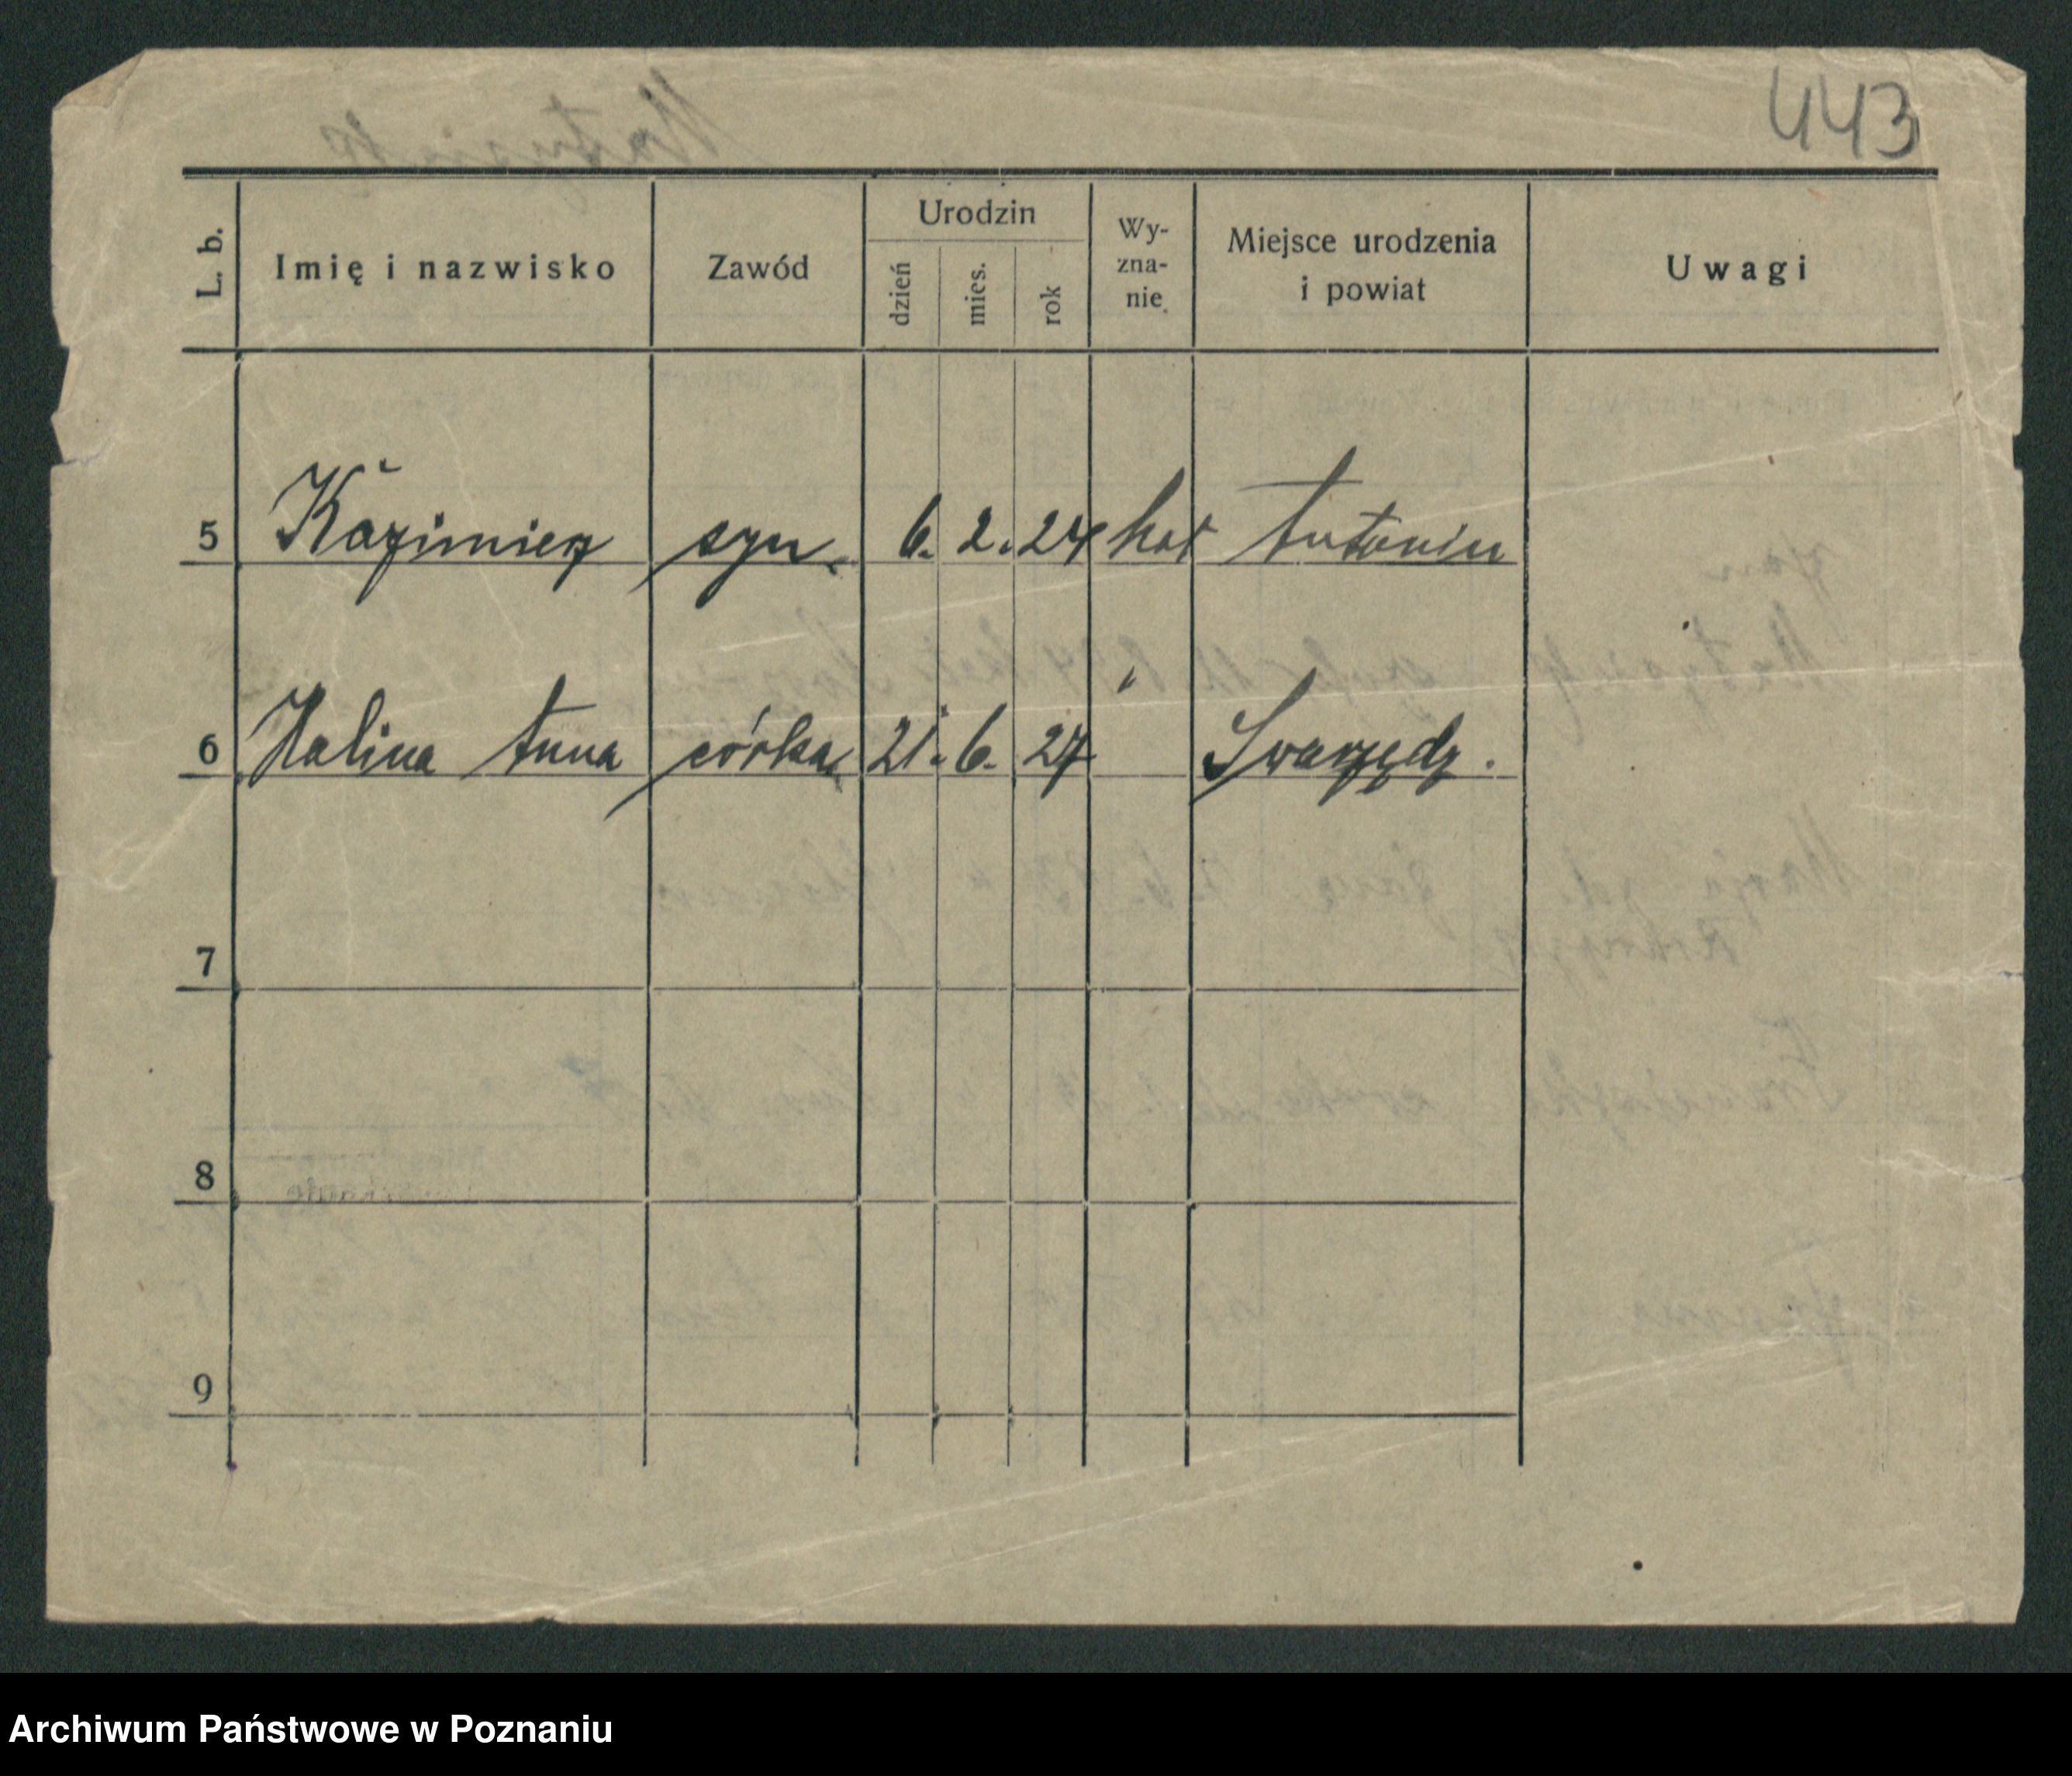 443
L. b. Imię i nazwisko Zawód Urodzin dzień mies. rok Wy-zna-nie Miejsce urodzenia i powiat Uwagi
5 Kazimierz syn 6. 2. 24 kat Antonin
6 Halina Anna córka 21. 6. 27 " Swarzędz.
7
8
9
Archiwum Państwowe w Poznaniu